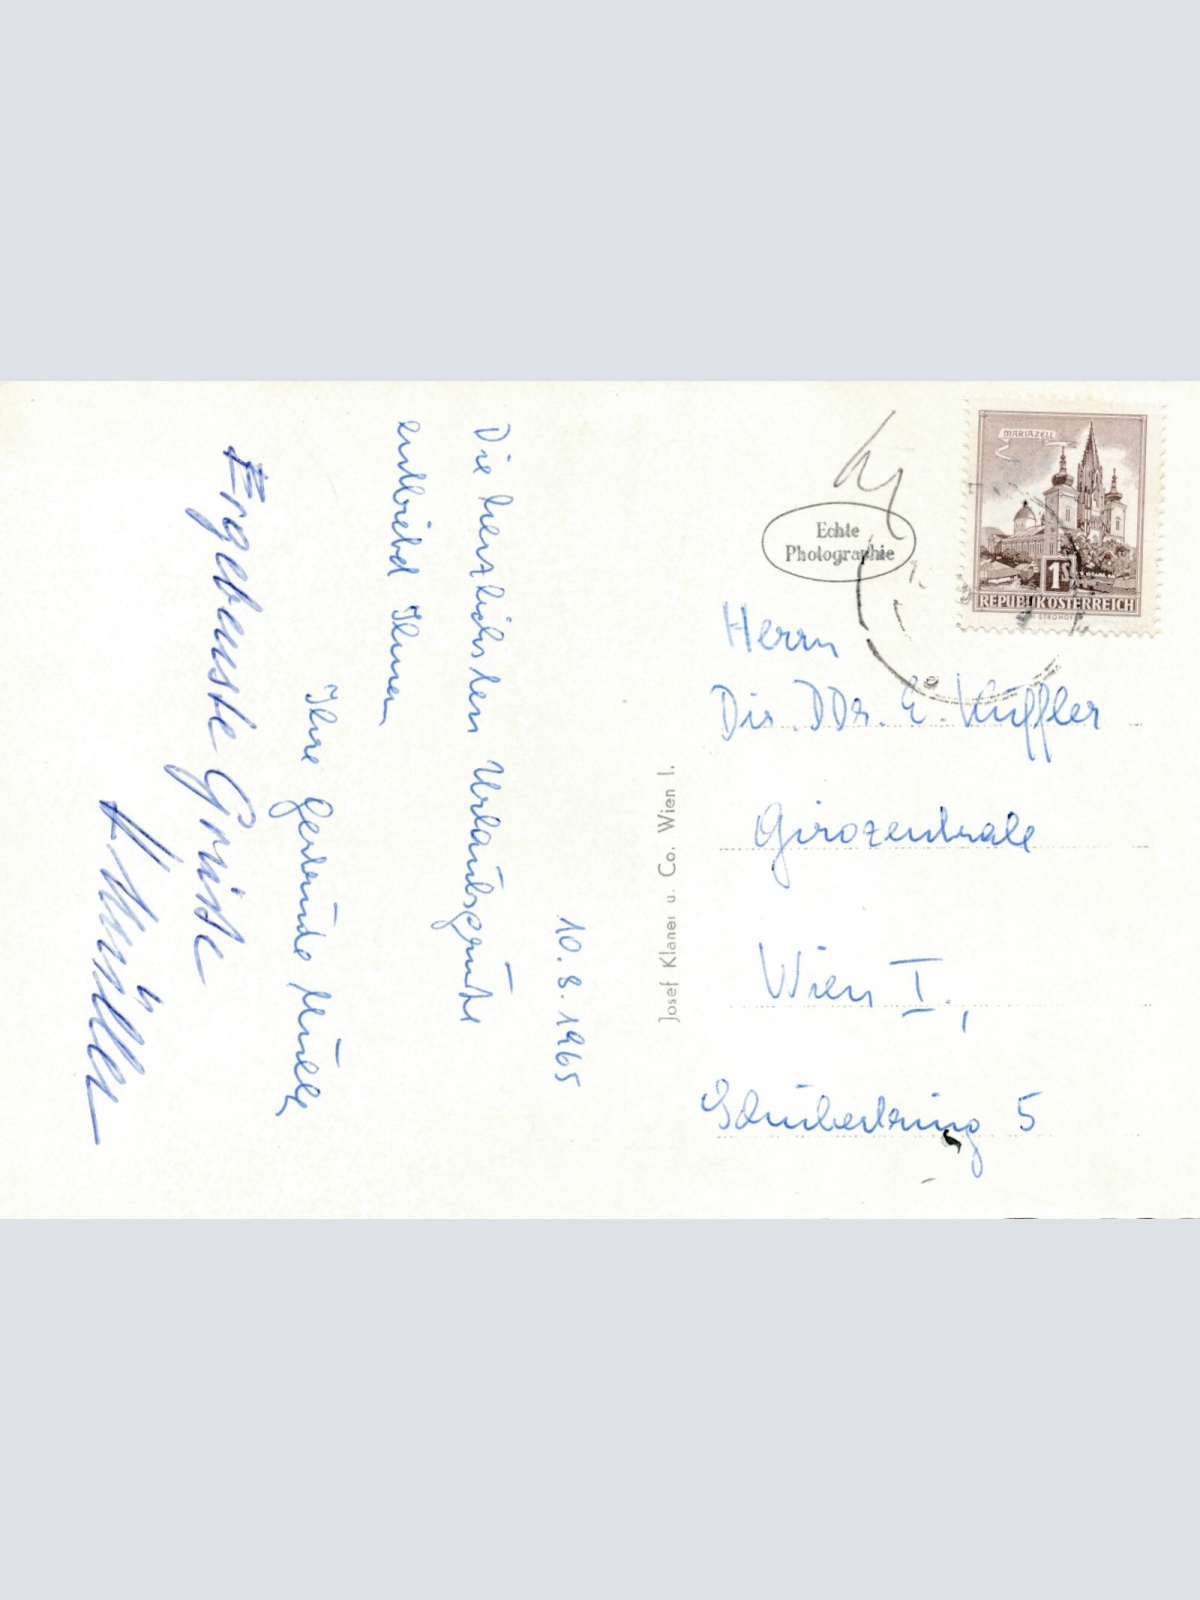 10.8.1965
Die herzlichsten Urlaubsgrüße
entbietet Ihnen
Ihre Gertrude Müller
Ergebenste Grüße
Müller
Josef Klaner u. Co. Wien I.
Echte
Photographie
MARIAZELL
1S
REPUBLIK ÖSTERREICH
Herrn
Dir. DDr. E. Kuffler
Girozentrale
Wien I.,
Schubertring 5